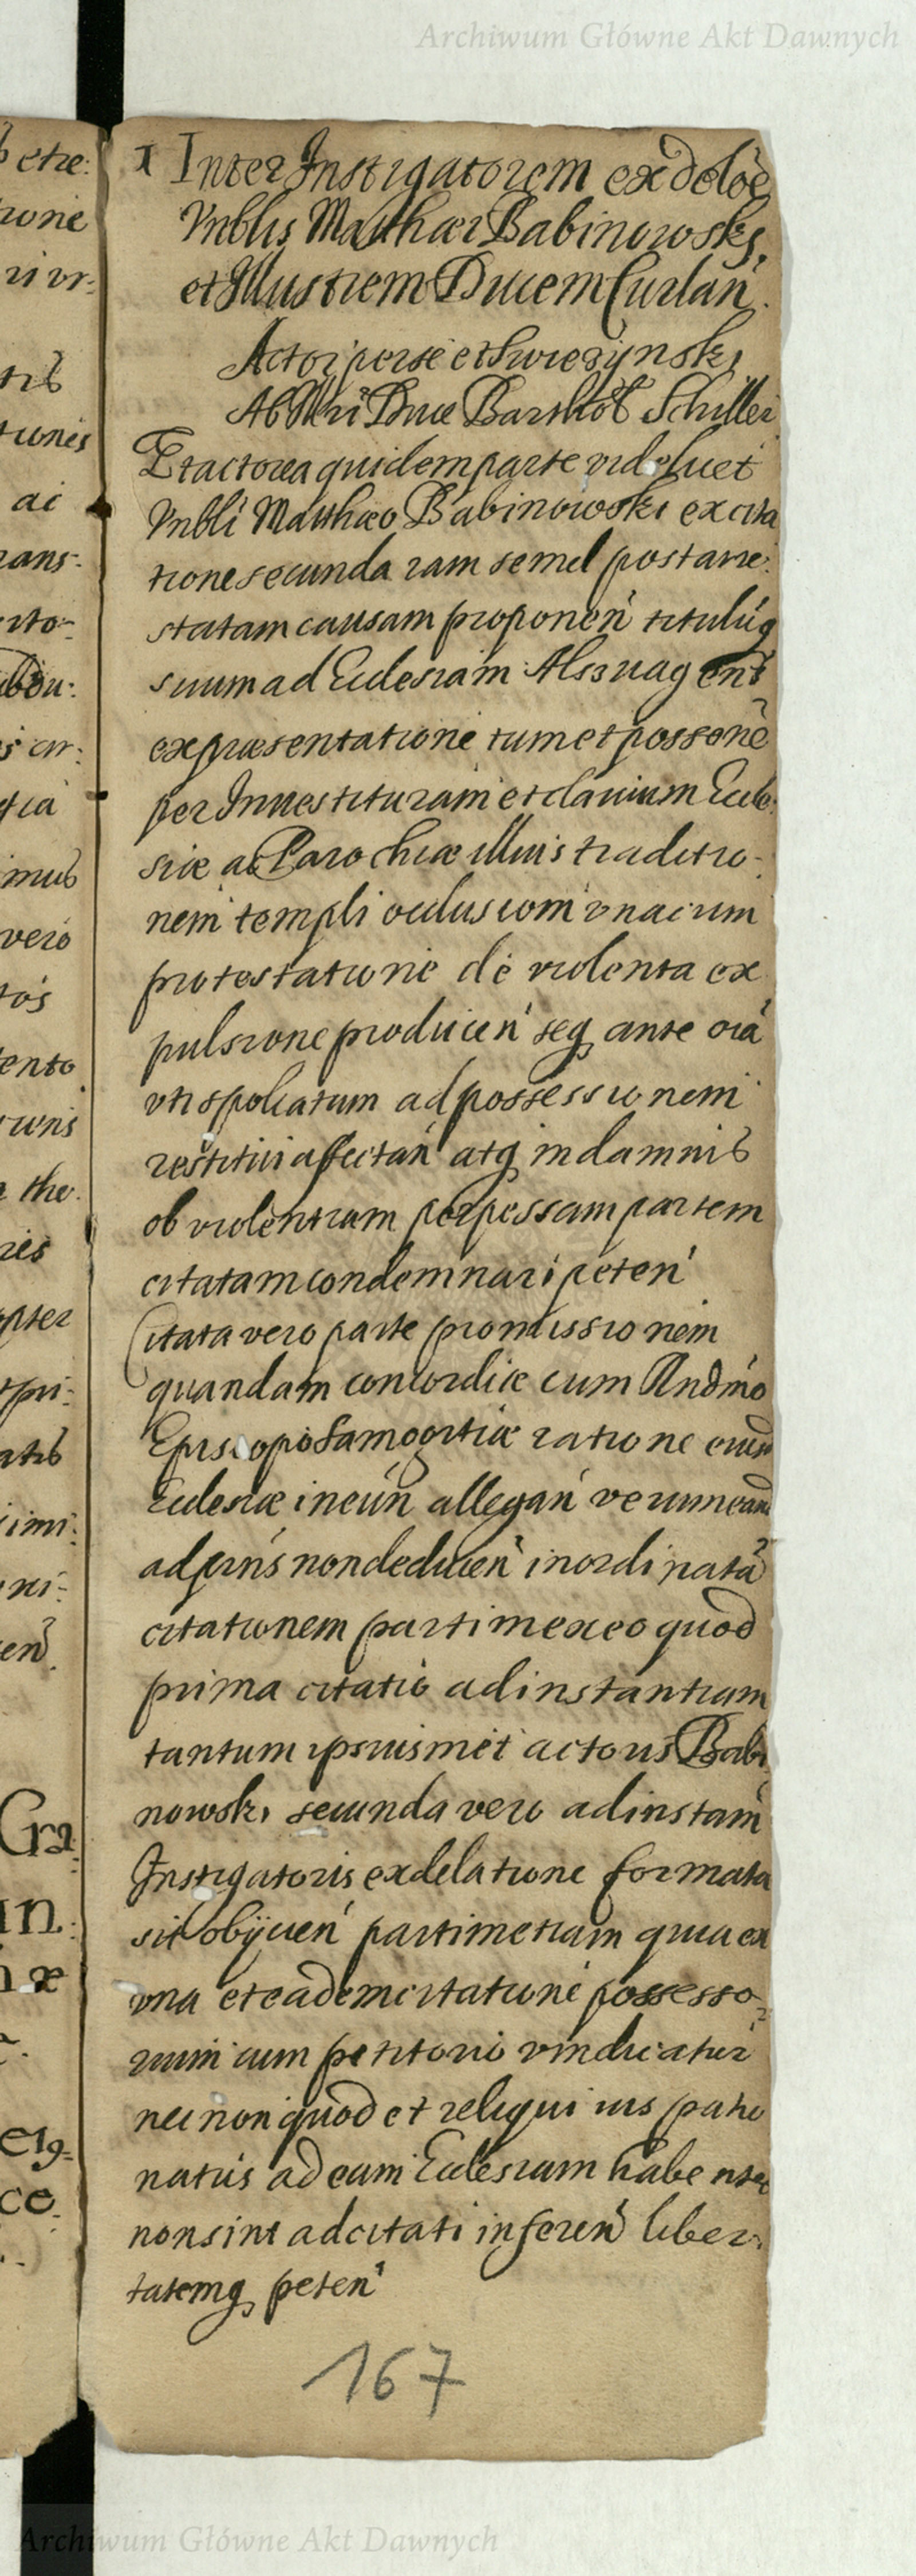 Archiwum Główne Akt Dawnych
1 Inter Instigatorem ex deloe
Vnblis Matthaei Babinowski
et Illustrem Ducem Curlan
Actor per se et Swiezynski
Ab Illri Duce Barthol Schiller
Et actorea quidem parte videlicet
Vnbli Matthaeo Babinowski ex cita
tione secunda iam semel post arre:
statam causam proponen titulūq
suum ad Ecclesiam Alszuag ent
ex praesentatione tum et possone
per Inuestituram et clauium Eccle:
siae ac Parochiae illius traditio-
nem templi occlusiom vnacum
protestatione de violenta ex
pulsione producen seq ante oia
vti spoliatum ad possessionem
restitui affectan atq in damnis
ob violentiam perpessam partem
citatam condemnari peten
Citata vero parte promissionem
quandam concordiae cum Rndmo
Episcopo Samogitiae ratione eiusd
Ecclesiae ineun allegan verum eam
ad prns non deducen inordinata
citationem partim ex eo quod
prima citatio ad instantiam
tantum ipsiusmet actoris Babi
nowski secunda vero ad instam
Instigatoris ex delatione formata
sit obijcien partim etiam quia ex
vna et eadem citatione possesso
rium cum petitorio vindicatur
nec non quod et reliqui ius patro
natus ad eam Ecclesiam habentes
non sint adcitati inferen liber
tatemq peten
167
Archiwum Główne Akt Dawnych